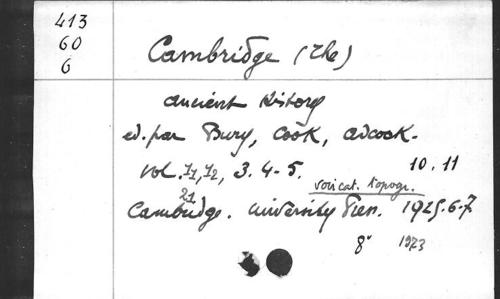 413
60
6
Cambridge (The)
ancient History
ed. par Bury, Cook, Adcock.
vol. 1₁, 1₂, 3. 4-5. 10. 11
21 voir cat. topogr.
Cambridge. University Press. 1925. 6-7
8° 1923